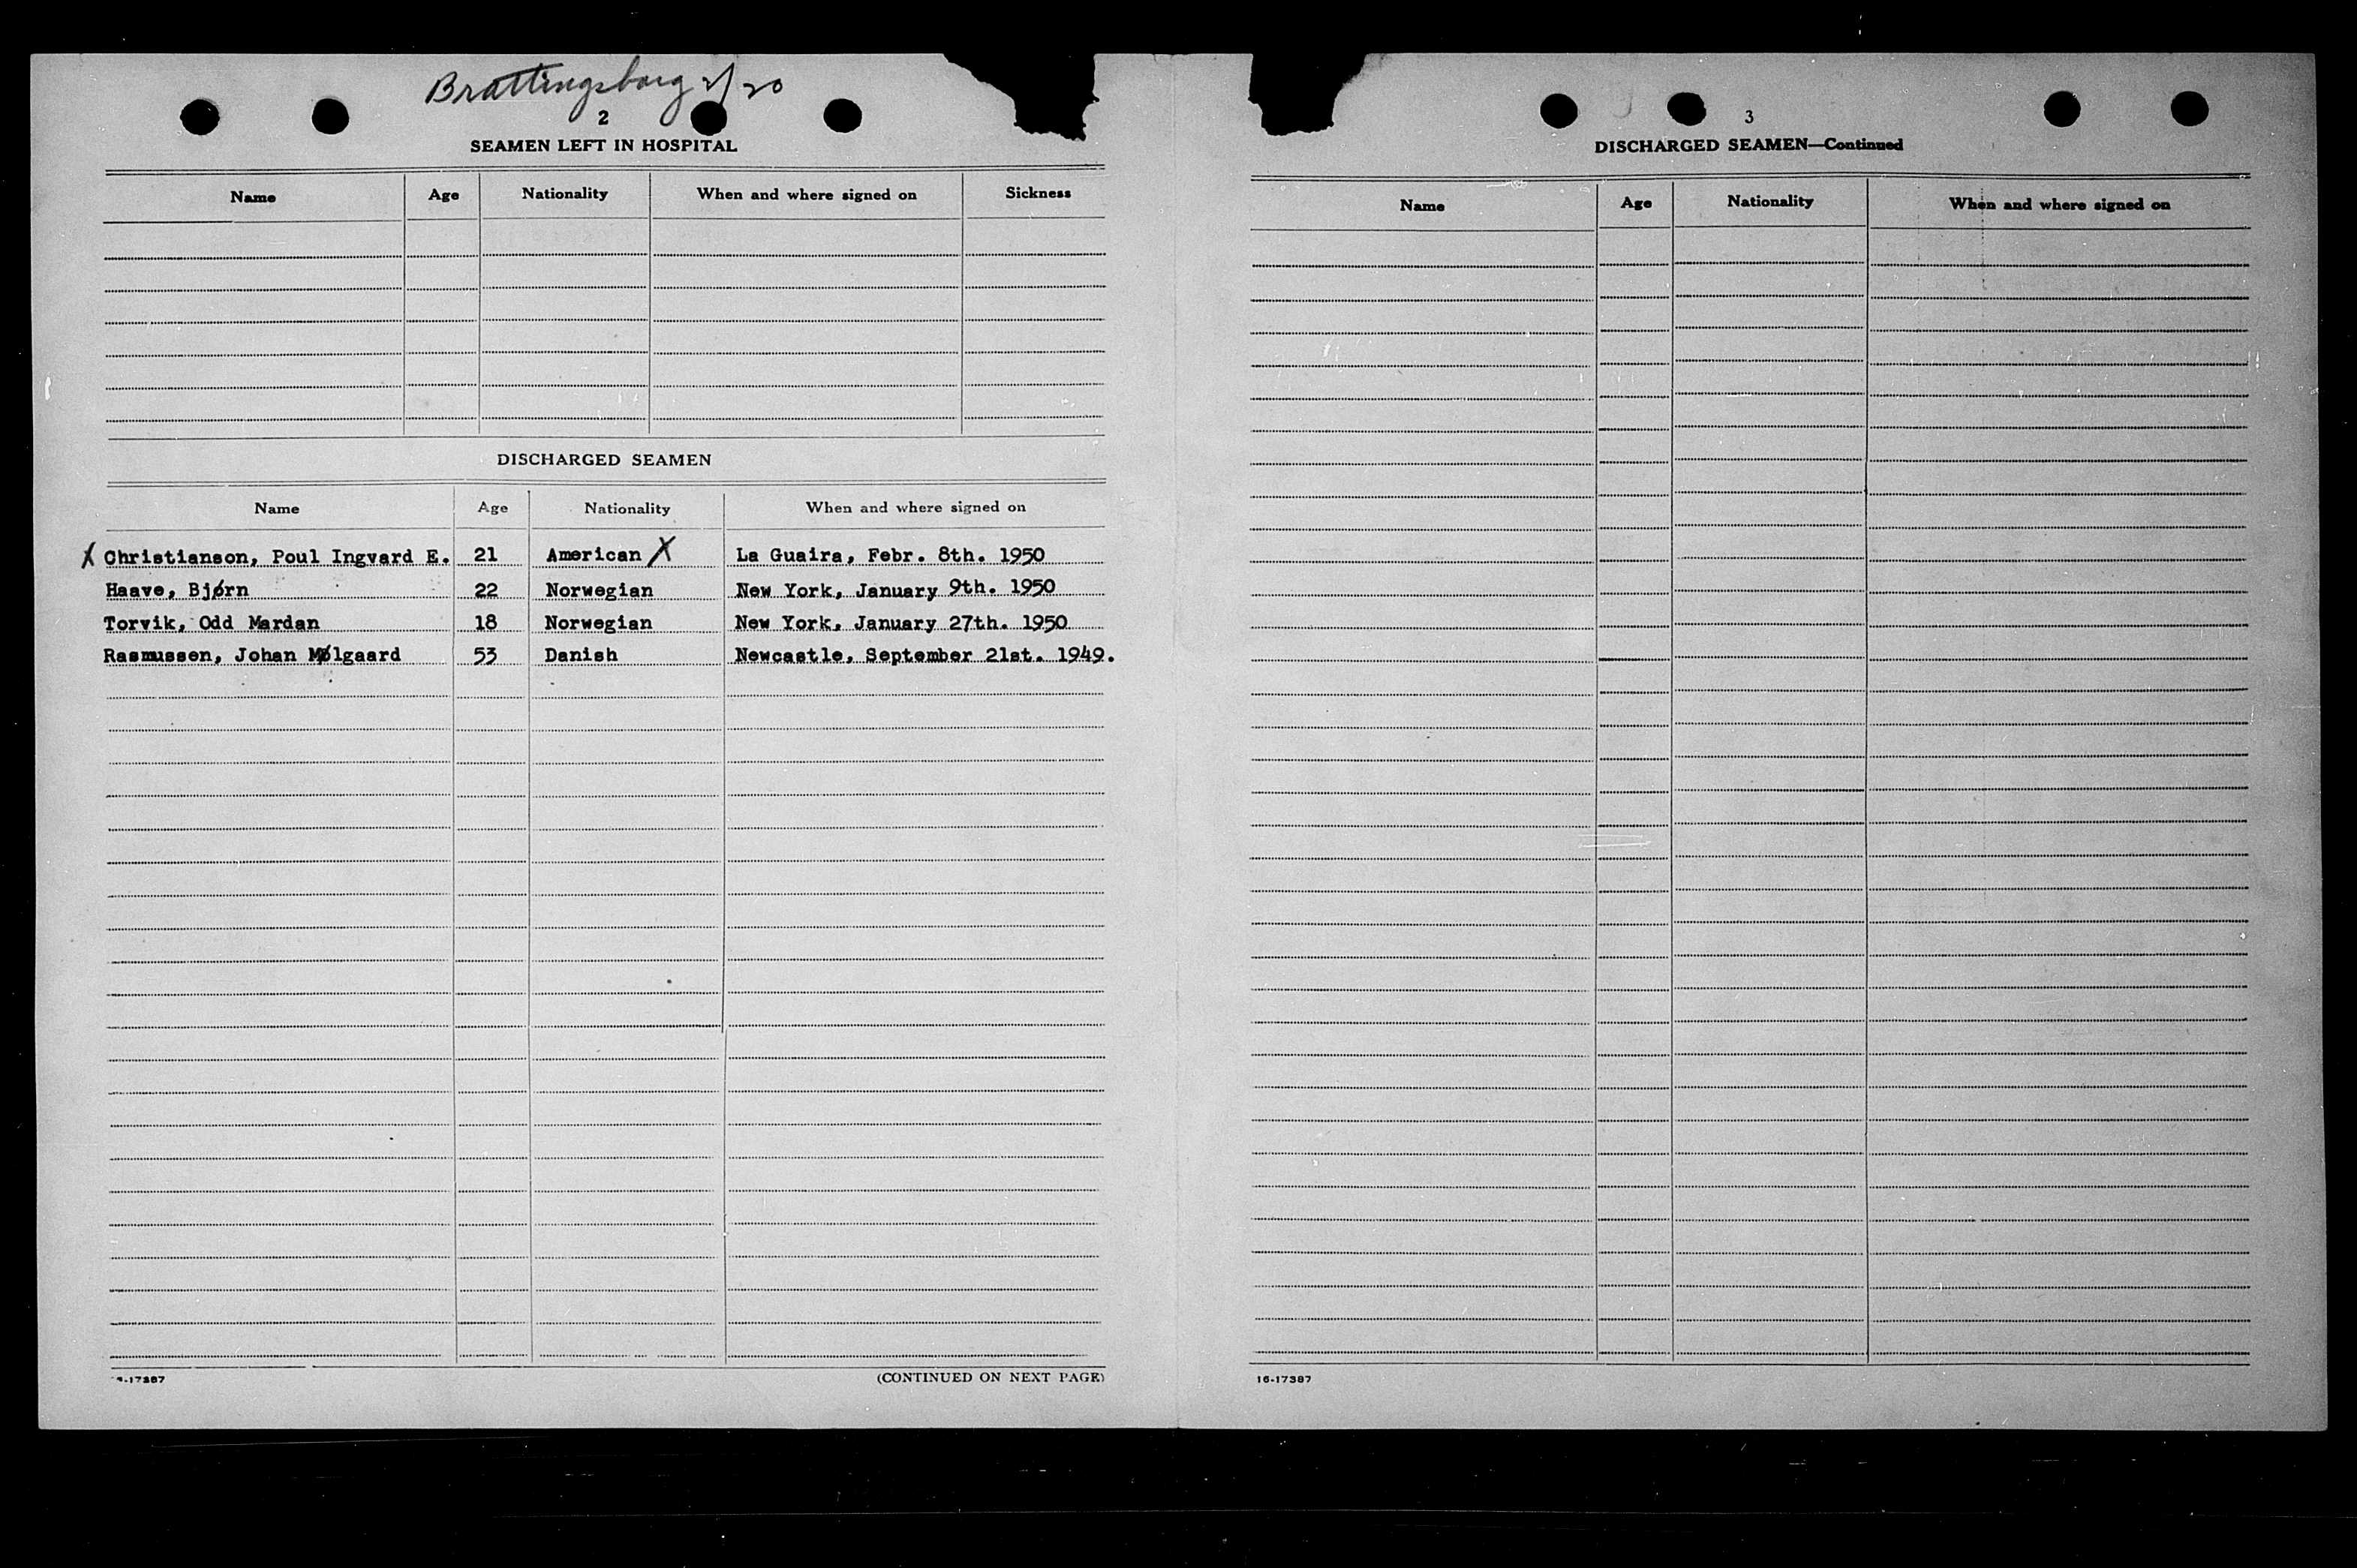 Brattingsborg 2/20
2
SEAMEN LEFT IN HOSPITAL
Name Age Nationality When and where signed on Sickness
DISCHARGED SEAMEN
Name Age Nationality When and where signed on
X Christianson, Poul Ingvard E. 21 American X La Guaira, Febr. 8th. 1950
Haave, Bjørn 22 Norwegian New York, January 9th. 1950
Torvik, Odd Mardan 18 Norwegian New York, January 27th. 1950
Rasmussen, Johan Mølgaard 53 Danish Newcastle, September 21st. 1949.
16-17387 (CONTINUED ON NEXT PAGE)
3
DISCHARGED SEAMEN—Continued
Name Age Nationality When and where signed on
16-17387